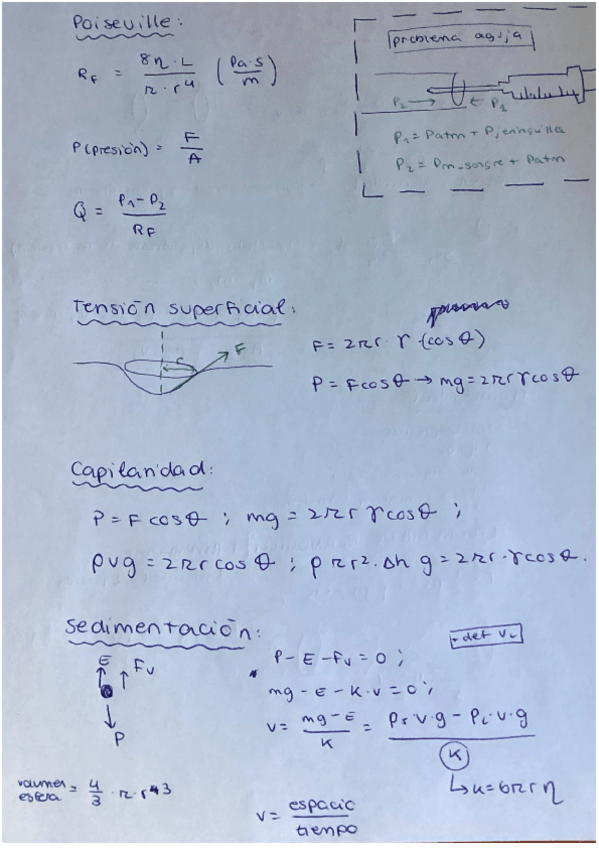 Poiseville:
R_F = 8η·L / π·r⁴ (Pa·s / m)
P(presión) = F / A
Q = P₁-P₂ / R_F
problema aguja
P₂ → ← P₁
P₁ = Patm + Pjeringuilla
P₂ = Pm_sangre + Patm
Tensión superficial:
r F
F = 2πr · γ · (cos θ)
P = F cos θ → mg = 2πr γ cos θ
Capilaridad:
P = F cos θ ; mg = 2πr γ cos θ ;
ρvg = 2πr cos θ ; ρπr²·Δh g = 2πr·γcosθ.
Sedimentación:
E Fv
P
- def vₗ
P - E - Fv = 0 ;
mg - E - K·v = 0 ;
v = mg - E / K = ρr·v·g - ρL·v·g / K
↳ K = 6πrη
volumen esfera = 4/3 · π · r^3
v = espacio / tiempo